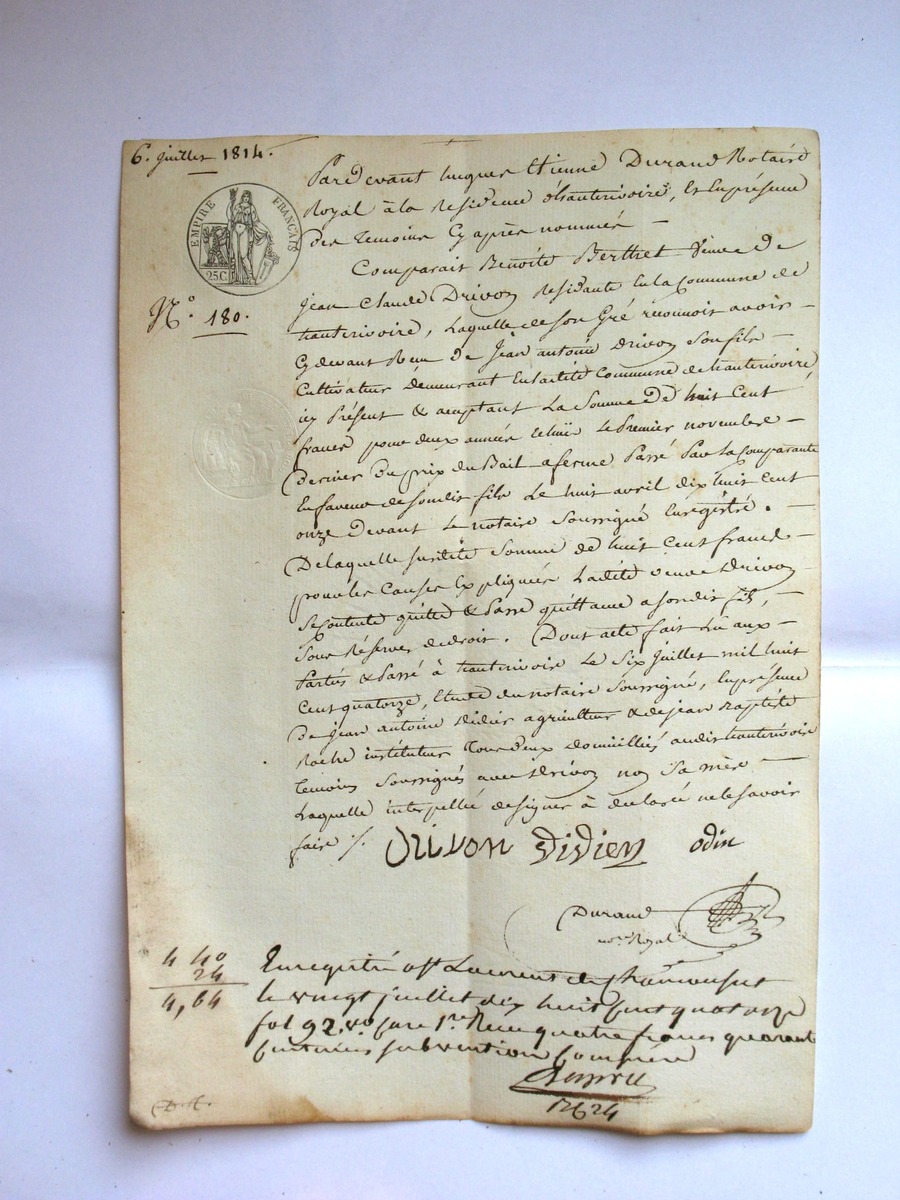 6. Juillet 1814.
EMPIRE FRANÇAIS
25C.
N.º 180.
Pardevant hugues Etienne Durand Notaire
Royal à la Residence d'hauterivoire, Et Enpresence
des temoins Cy après nommés —
Comparait Benoite Berthet Veuve de
Jean Claude Drivon Residante En la Commune de
hauterivoire, Laquelle de son Gré reconnoit avoir
Cydevant Reçu de Jean antoine Drivon Son fils —
Cultivateur Demeurant En ladite Commune de hauterivoire,
icy Présent & acceptant La Somme de huit Cent
francs pour deux années Echüe Le Premier novembre
dernier Du prix du Bail aferme Passé Par La Comparante
En faveur de son dit fils Le huit avril dix huit Cent
onze devant Le notaire Soussigné Enregistré. —
De laquelle susdite Somme de huit Cent francs —
pour les Causes Expliquées Ladite veuve Drivon
Se Contente quitte & Passe quittance a son dit fils, —
Sous Réserve de droit. Dont acte fait Lu aux —
Parties & Passé à hauterivoire Le Six Juillet mil huit
Cent quatorze, Etude du notaire Soussigné, En présence
de Jean antoine Didier agriculteur & de jean Baptiste
instituteur Tous deux Domiciliés audit hauterivoire
Temoins Soussignés avec Drivon non Sa mère —
Laquelle interpellée de signer à declaré ne le savoir
faire ./.
Drivon Didier odin
Durand
no.re Royal
4 40
24
4,64
Enregistré a St Laurent de Chamousset
le vingt juillet dix huit Cent quatorze
fol 92 vº Case 1.re Reçu quatre francs quarante
Centimes subvention Comprise
12624